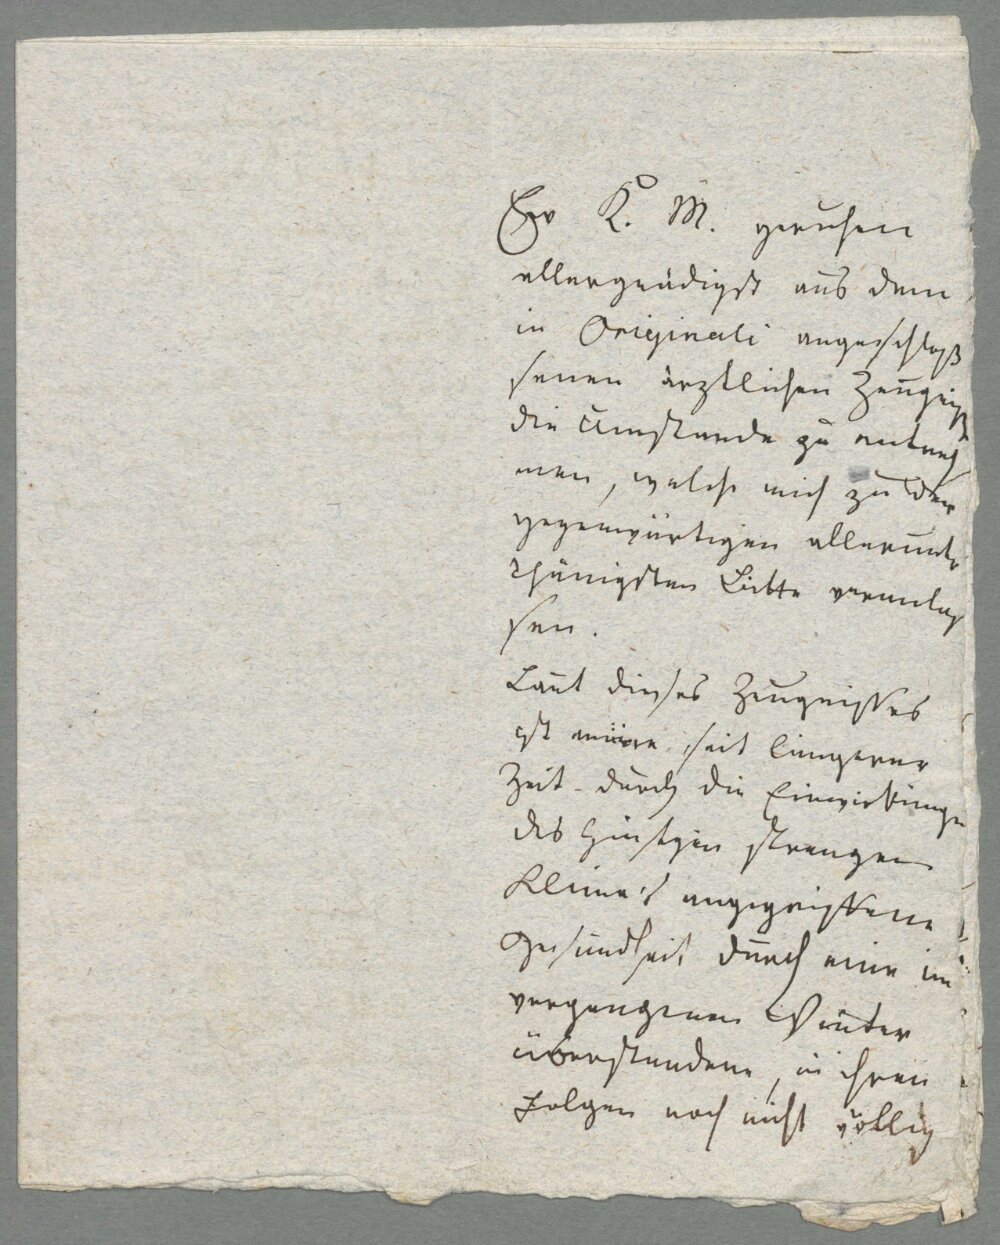 Ew K. M. geruhen
allergnädigst aus dem
in Originali angeschloß
senen ärztlichen Zeugniß
die Umstände zu entneh
men, welche mich zu der
gegenwärtigen allerunter
thänigsten Bitte veranlas
sen.
Laut dieses Zeugnisses
ist meine seit längerer
Zeit durch die Einwirkungen
des hiesigen strengen
Klima's angegriffene
Gesundheit durch eine im
vergangenen Winter
überstandene, in ihren
Folgen noch nicht völlig